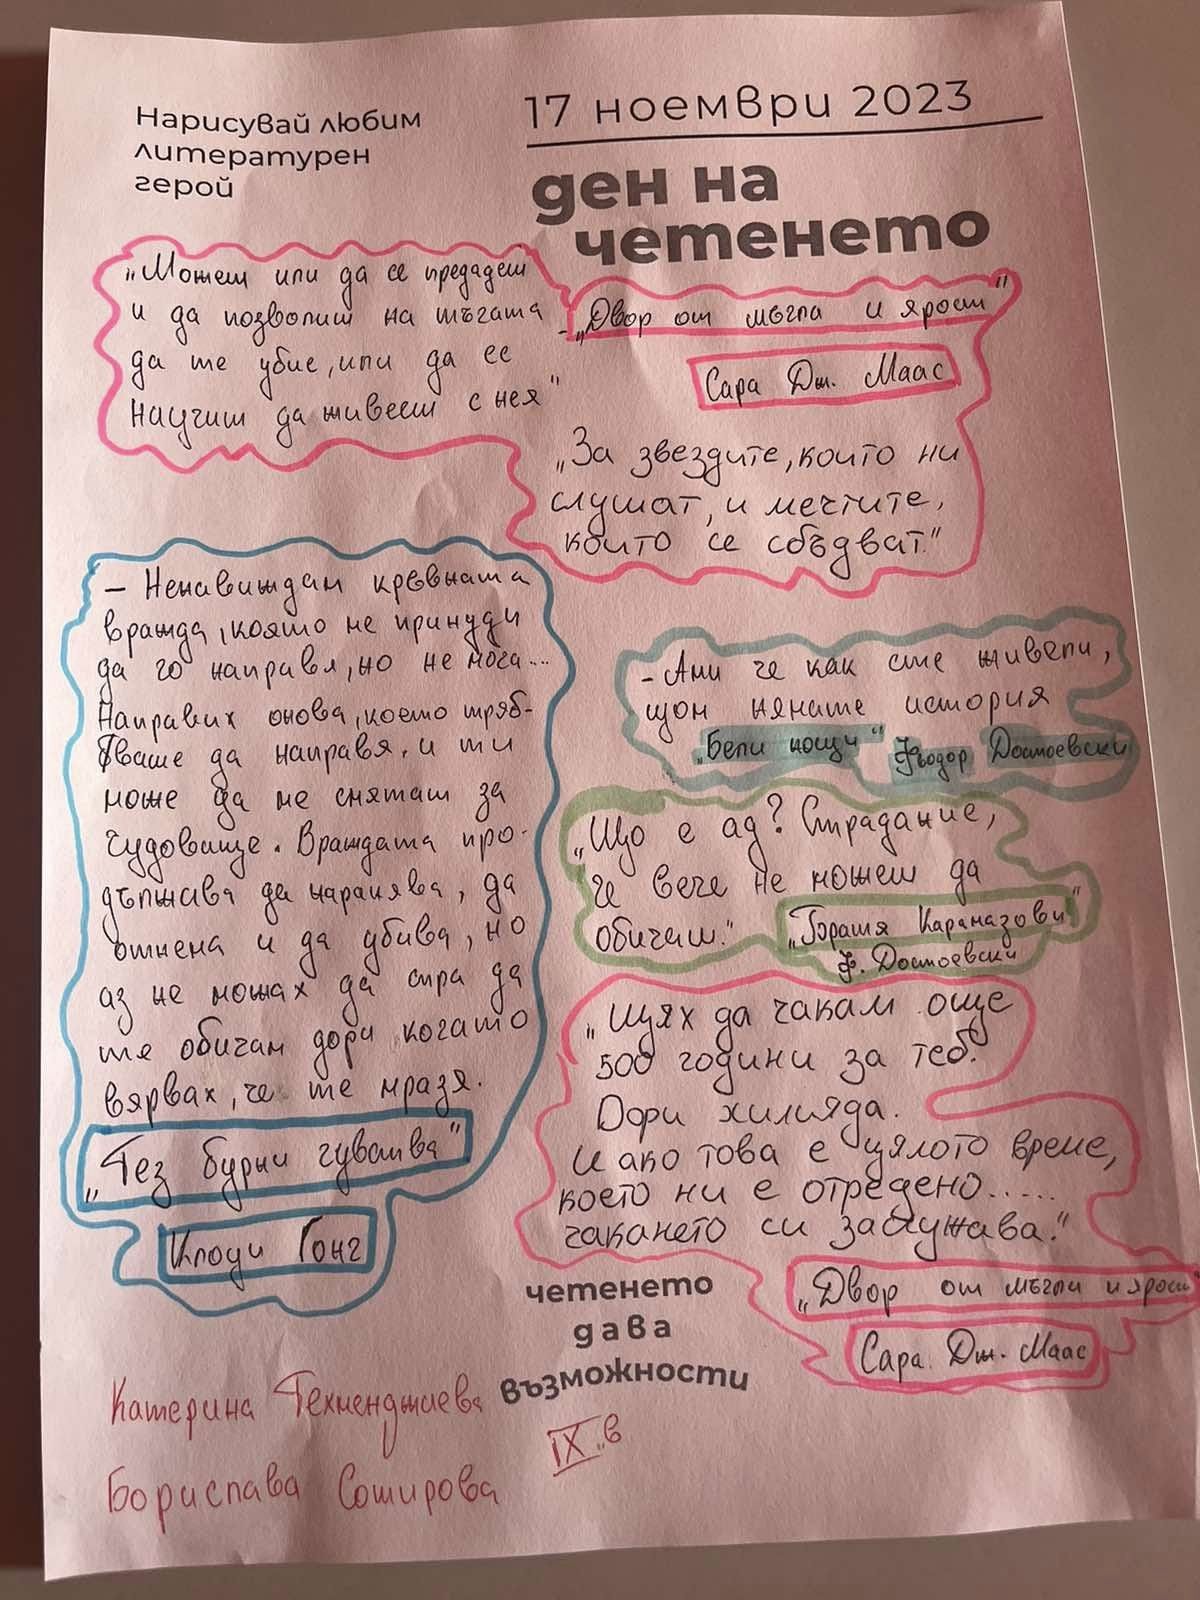 Нарисувай любим
литературен
герой
17 ноември 2023
ден на
четенето
"Можеш или да се предадеш
и да позволиш на тъгата
да те убие, или да се
научиш да живееш с нея"
- „Двор от мъгла и ярост"
Сара Дж. Маас
„За звездите, които ни
слушат, и мечтите,
които се сбъдват."
- Ненавиждам кръвната
вражда, която ме принуди
да го направя, но не мога...
Направих онова, което тряб-
ваше да направя, и ти
може да ме смяташ за
чудовище. Враждата про-
дължава да наранява, да
отнема и да убива, но
аз не можах да спра да
те обичам дори когато
вярвах, че те мразя.
„Тез бурни чувства"
Клоуи Гонг
- Ами че как сте живели,
щом нямате история
„Бели нощи" Фьодор Достоевски
„Що е ад? Страдание,
че вече не можеш да
обичаш." „Братя Карамазови"
Ф. Достоевски
„Щях да чакам още
500 години за теб.
Дори хиляда.
И ако това е цялото време,
което ни е отредено.....
чакането си заслужава."
„Двор от мъгли и ярост
Сара Дж. Маас
четенето
дава
възможности
Катерина
IX „в
Борислава